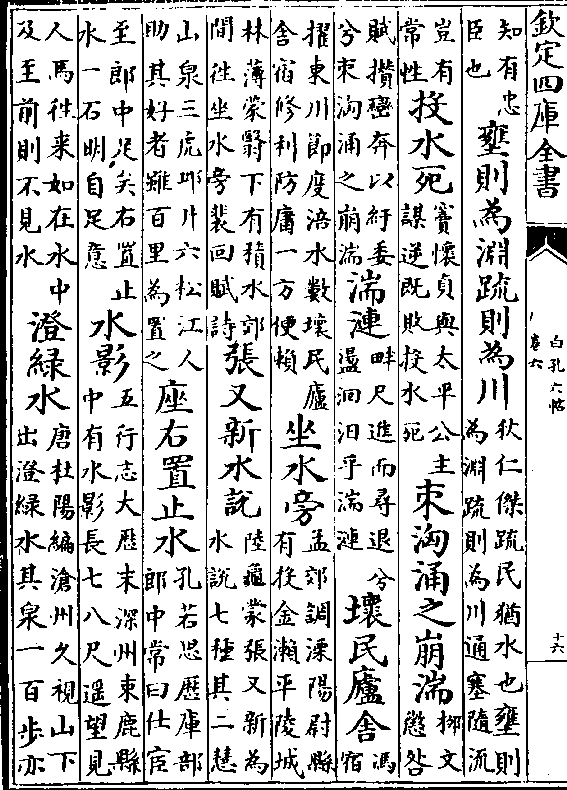 欽定四庫全書
白孔六帖
卷六
十六
知有忠臣也壅則為淵疏則為川狄仁傑疏民猶水也壅則為淵疏則為川通塞隨流
豈有常性投水死竇懷貞與太平公主謀逆既敗投水死束洶涌之崩湍栁文懲咎
賦攅巒奔以紆委兮束洶涌之崩湍湍漣畔尺進而尋退兮盪洄汨乎湍漣壞民廬舍馮宿
擢東川節度涪水數壞民廬舍宿修利防庸一方便賴坐水旁孟郊調溧陽尉縣有投金瀨平陵城
林薄蒙翳下有積水郊間往坐水旁裴回賦詩張又新水說陸龜蒙張又新為水說七種其二慧
山泉三虎邱井六松江人助其好者雖百里為置之座右置止水孔若思歴庫部郎中常曰仕宦
至郎中足矣右置止水一石明自足意水影五行志大厯末深州束鹿縣中有水影長七八尺遥望見
人馬往来如在水中及至前則不見水澄緑水唐杜陽編滄州久視山下出澄緑水其泉一百步亦